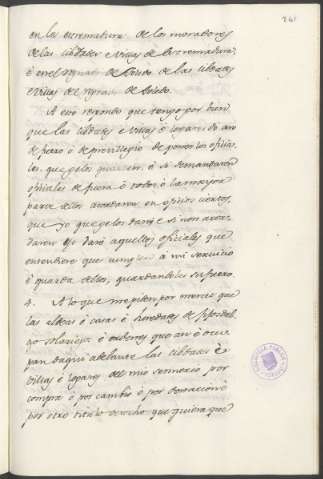 241
en las extremadura. de los moradores
de las cibdades e villas de Extremadura,
e en el Regnado de Toledo de las cibdades
e villas del regnado de Toledo.
A esto respondo que tengo por bien
que las cibdades e villas e logares do an
de fuero o de previllegio de poner los oficia-
les, que ge los guarden, e si demandaren
oficiales de fuera e todos o la mayor
parte de los acordaren en oficios ciertos,
que yo que ge los dare, e si non acor-
daren yo dare aquellos oficiales que
entendiere que cumplen a mi servicio
e guarda dellos, guardandoles su fuero.
4. A lo que me piden por merced que
las aldeas e casas e heredades de fijosdal-
go e ordenes que an e ocu-
pan daqui adelante las cibdades e
villas e logares del mio sennorio por
compra o por cambio o por donacion e
por otro titulo derecho que quiera que